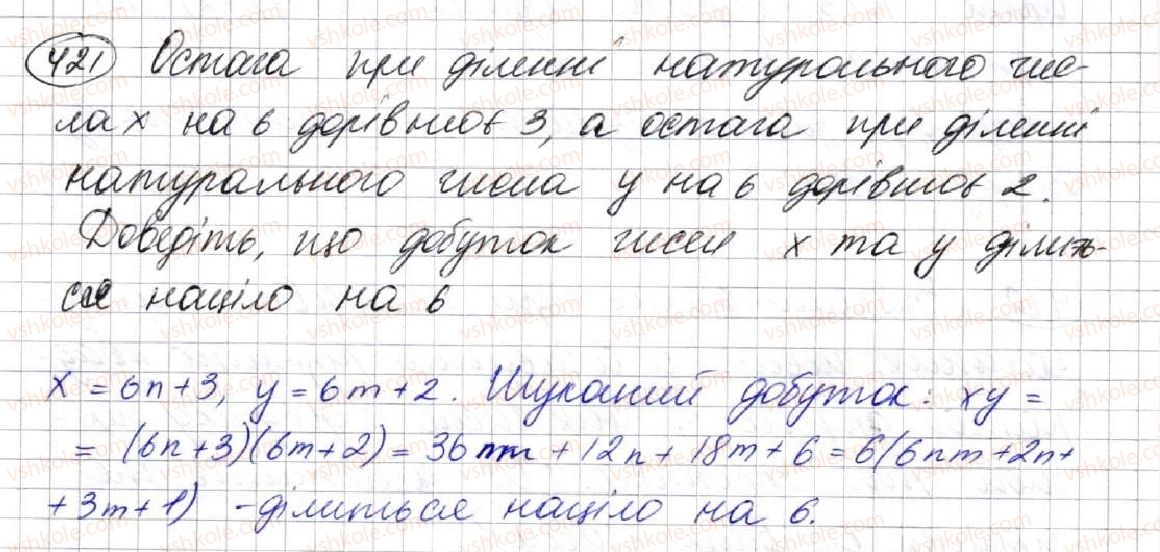 421 Остача при діленні натурального чис-
ла x на 6 дорівнює 3, а остача при діленні
натурального числа y на 6 дорівнює 2.
Доведіть, що добуток чисел x та y ділить-
ся націло на 6
x = 6n + 3, y = 6m + 2. Шуканий добуток: xy =
= (6n + 3)(6m + 2) = 36nm + 12n + 18m + 6 = 6(6nm + 2n +
+ 3m + 1) - ділиться націло на 6.